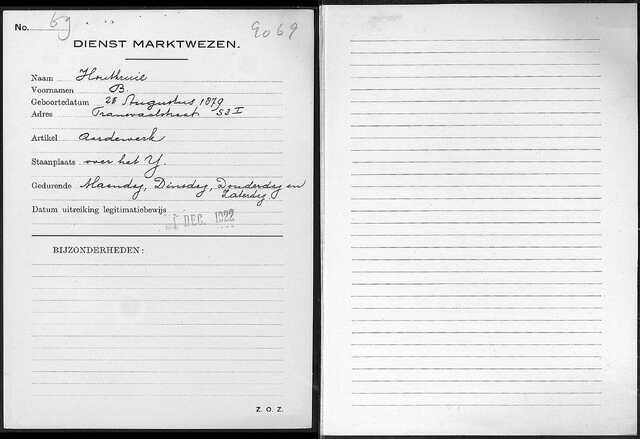 No. 69 9069
DIENST MARKTWEZEN.
Naam Houtkruil
Voornamen B.
Geboortedatum 28 Augustus 1879
Adres Transvaalstraat 53 I
Artikel Aardewerk
Staanplaats over het Y.
Gedurende Maandag, Dinsdag, Donderdag en
Zaterdag
Datum uitreiking legitimatiebewijs
1 DEC. 1922
BIJZONDERHEDEN:
Z. O. Z.